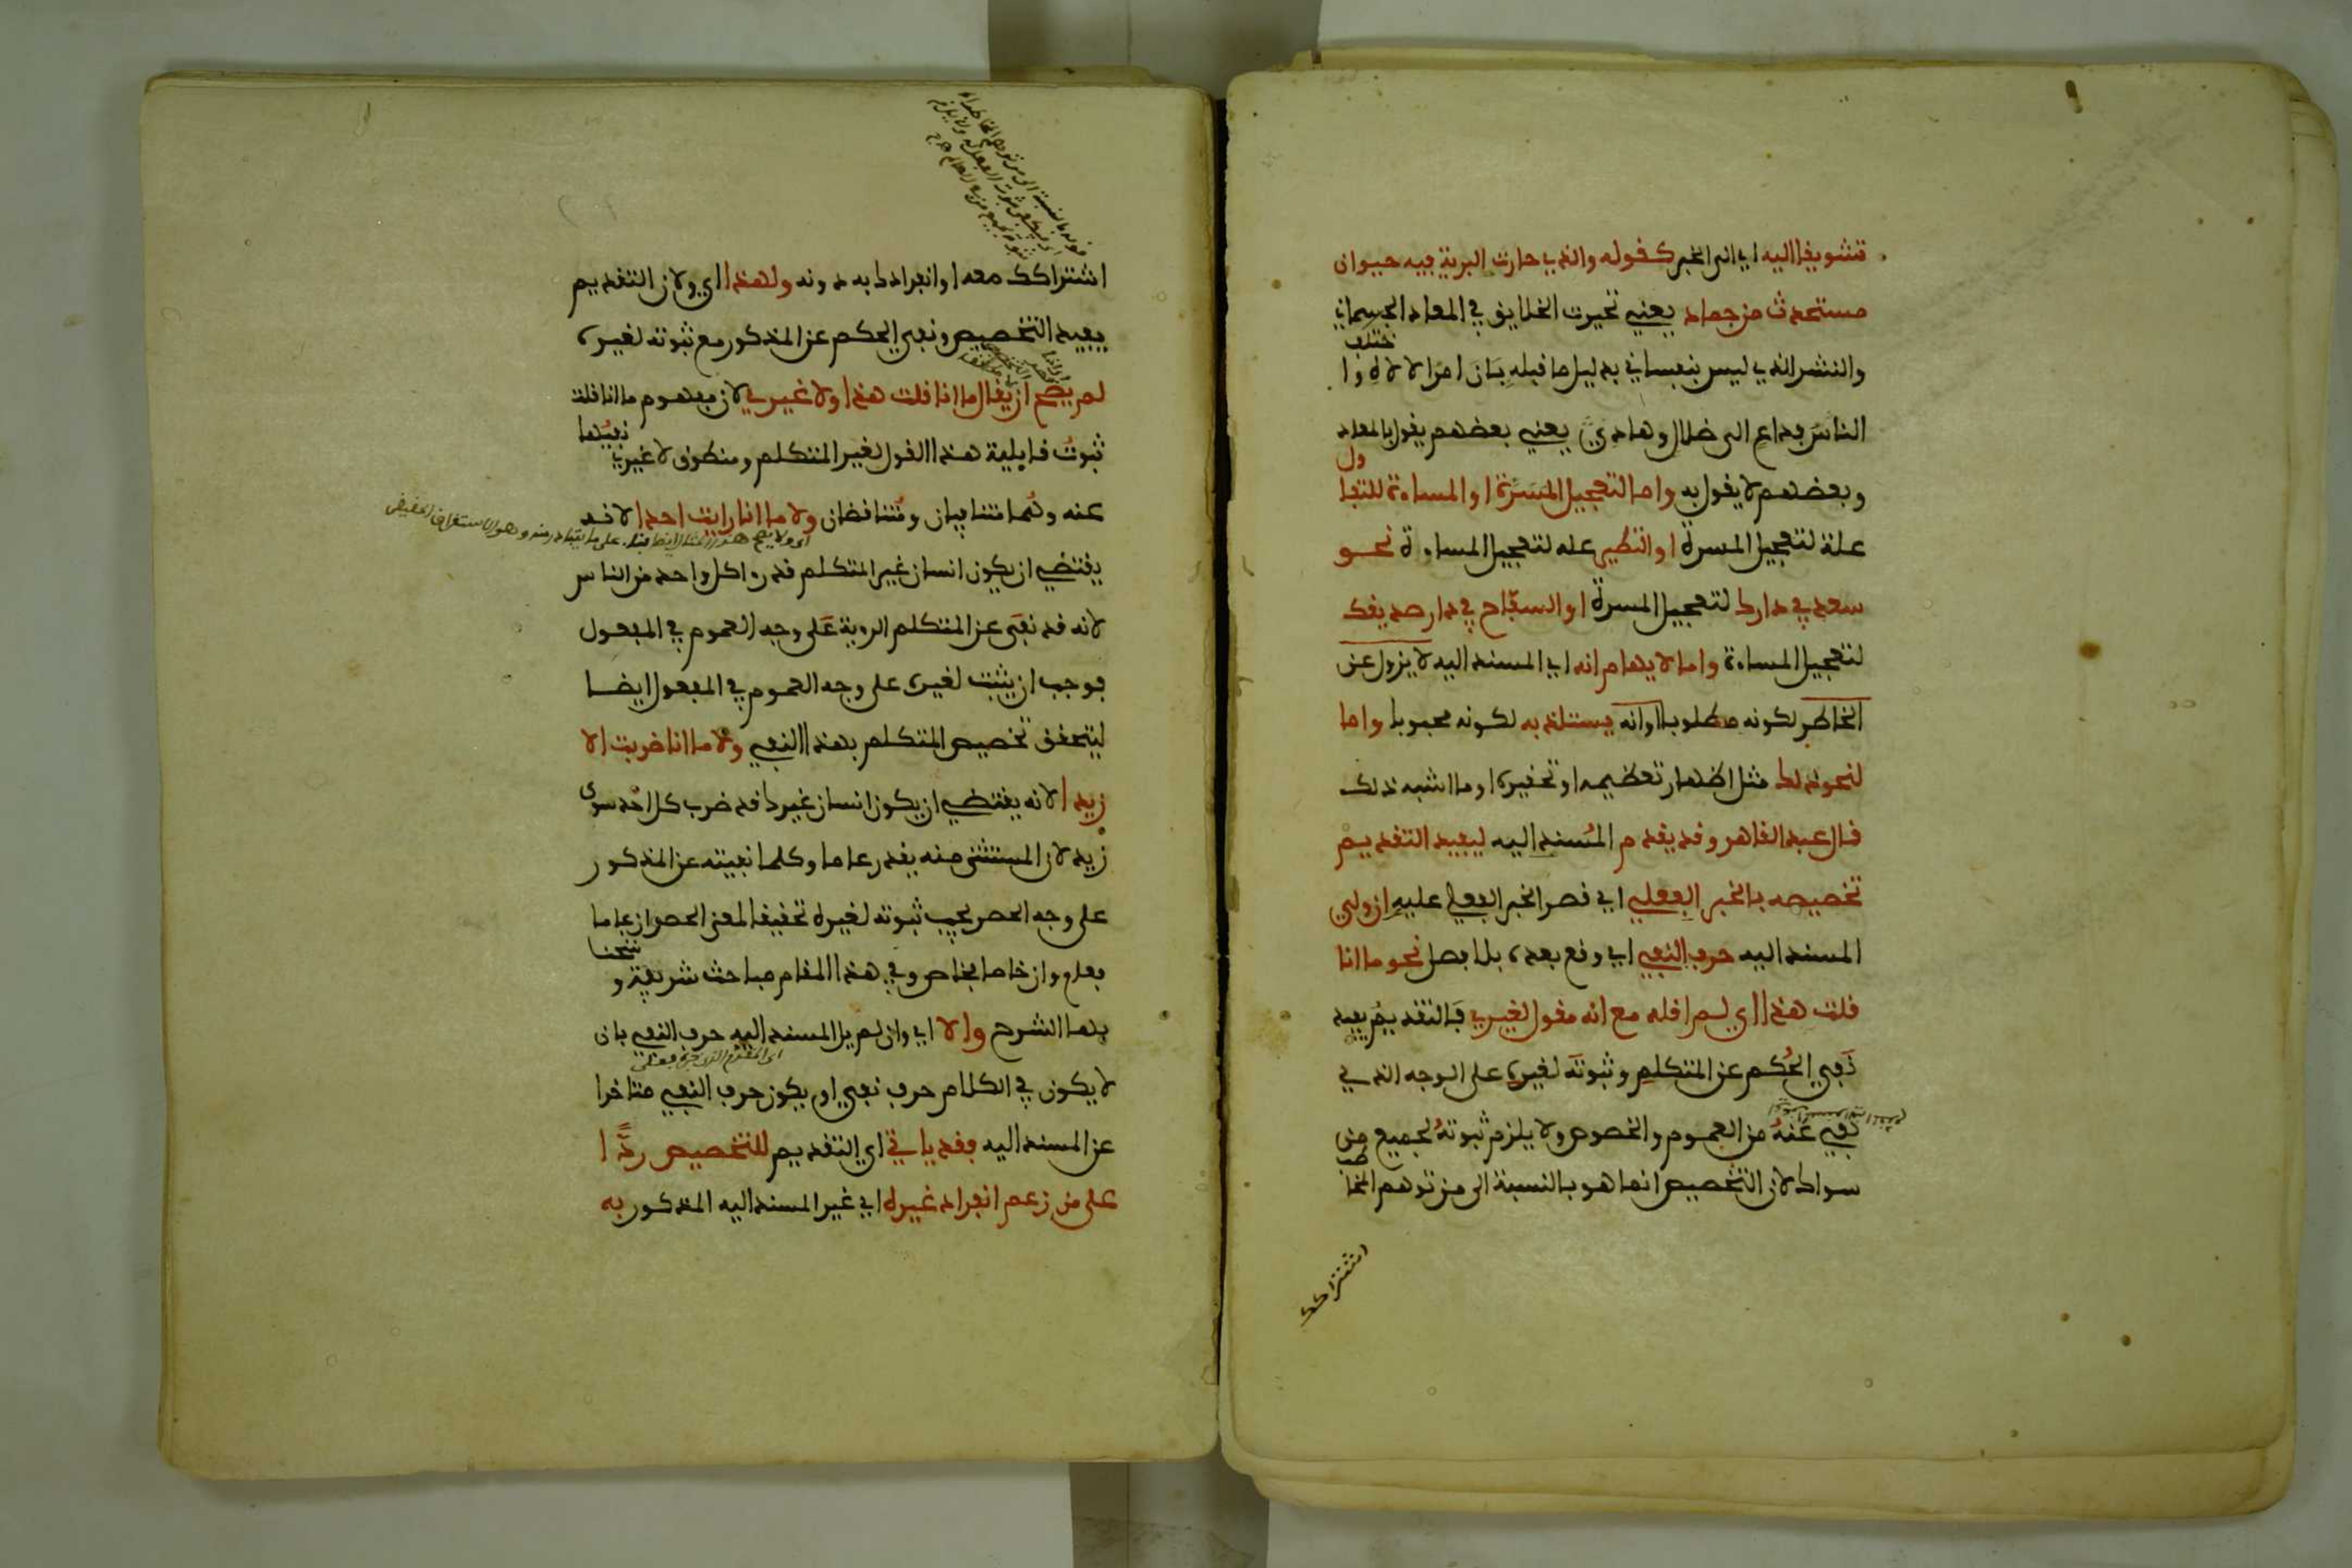 تشويفا اليه اي الى الخبر كقوله والذي حارت البرية فيه حيوان
مستحدث من جماد يعني تحيرت الخلايق في المعاد الجسماني
والنشر الذي ليس بنفساني بدليل ما قبله بَانَ امرُ الالاه واختلف
الناسُ فداعٍ الى ضلال وهادي يعني بعضهم يقول بالمعاد
وبعضهم لا يقول به واما لتعجيل المسَرّة او المساءة للتفاول
علة لتعجيل المسرة او التطير علة لتعجيل المساءة نحو
سعد في دارك لتعجيل المسرة او السفّاح في دار صديقك
لتعجيل المساءة واما لايهام انه اي المسند اليه لا يزول عن
الخاطر لكونه مطلوبا او انه يستلذ به لكونه محبوبا واما
لنحو ذلك مثل اظهار تعظيمه او تحقيره او ما اشبه ذلك
قال عبد القاهر وقد يقدم المُسند اليه ليفيد التقديم
تخصيصه بالخبر الفعلي اي قصر الخبر الفعلي عليهِ ان ولي
المسند اليه حرف النفي اي وقع بعده بلا فصل نحو ما انا
قلت هذا اي لم اقله مع انه مقول لغيري فالتقديم يفيد
نَفي الحُكم عن المتكلم وثبوتَه لغيره على الوجه الذي
نُفي عَنهُ من العموم والخصوص ولا يلزم ثبوتهُ لجميع من
سواك لان التخصيص انما هو بالنسبة الى من توهم المخاطب
اشتراكك
اشتراكك معه او انفرادك به دونه ولهذا اي ولان التقديم
يفيد التخصيص ونفي الحكم عن المذكور مع ثبوته لغيره
لم يصح ان يقال ما انا قلت هذا ولا غيري لان مفهوم ما انا قلت
ثبوتُ قايلية هذا القول لغير المتكلم ومنطوق لا غيري نفيُها
عنه وهُما متنافيان ومُتناقضان ولا ما انا رايت احدا لانه
اي ولا يصح هذا المثال ايضا بناء على ما يتبادر منه وهو الاستغراق الحقيقي
يقتضي ان يكون انسان غير المتكلم قد راى كل واحد من الناس
لانه قد نفَى عن المتكلم الروية عَلى وجه العموم في المفعول
فوجب ان يثبت لغيره على وجه العموم في المفعول ايضا
ليتحقق تخصيص المتكلم بهذا النفي ولا ما انا ضربت الا
زيدا لانه يقتضي ان يكون انسان غيرك قد ضرب كل احد سوى
زيد لان المستثنى منه يقدر عاما وكلما نفيته عن المذكور
على وجه الحصر يجب ثبوته لغيره تحقيقا لمعنى الحصر ان عاما
فعام وان خاصا فخاص وفي هذا المقام مباحث شريفة وشحنا
بها الشرح والا اي وان لم يل المسند اليه حرف النفي بان
اي المقدم الذي خبره فعلي
لا يكون في الكلام حرف نفي او يكون حرف النفي متاخرا
عن المسند اليه فقد ياتي اي التقديم للتخصيص ردًّا
على من زعم انفراد غيره اي غير المسند اليه المذكور به